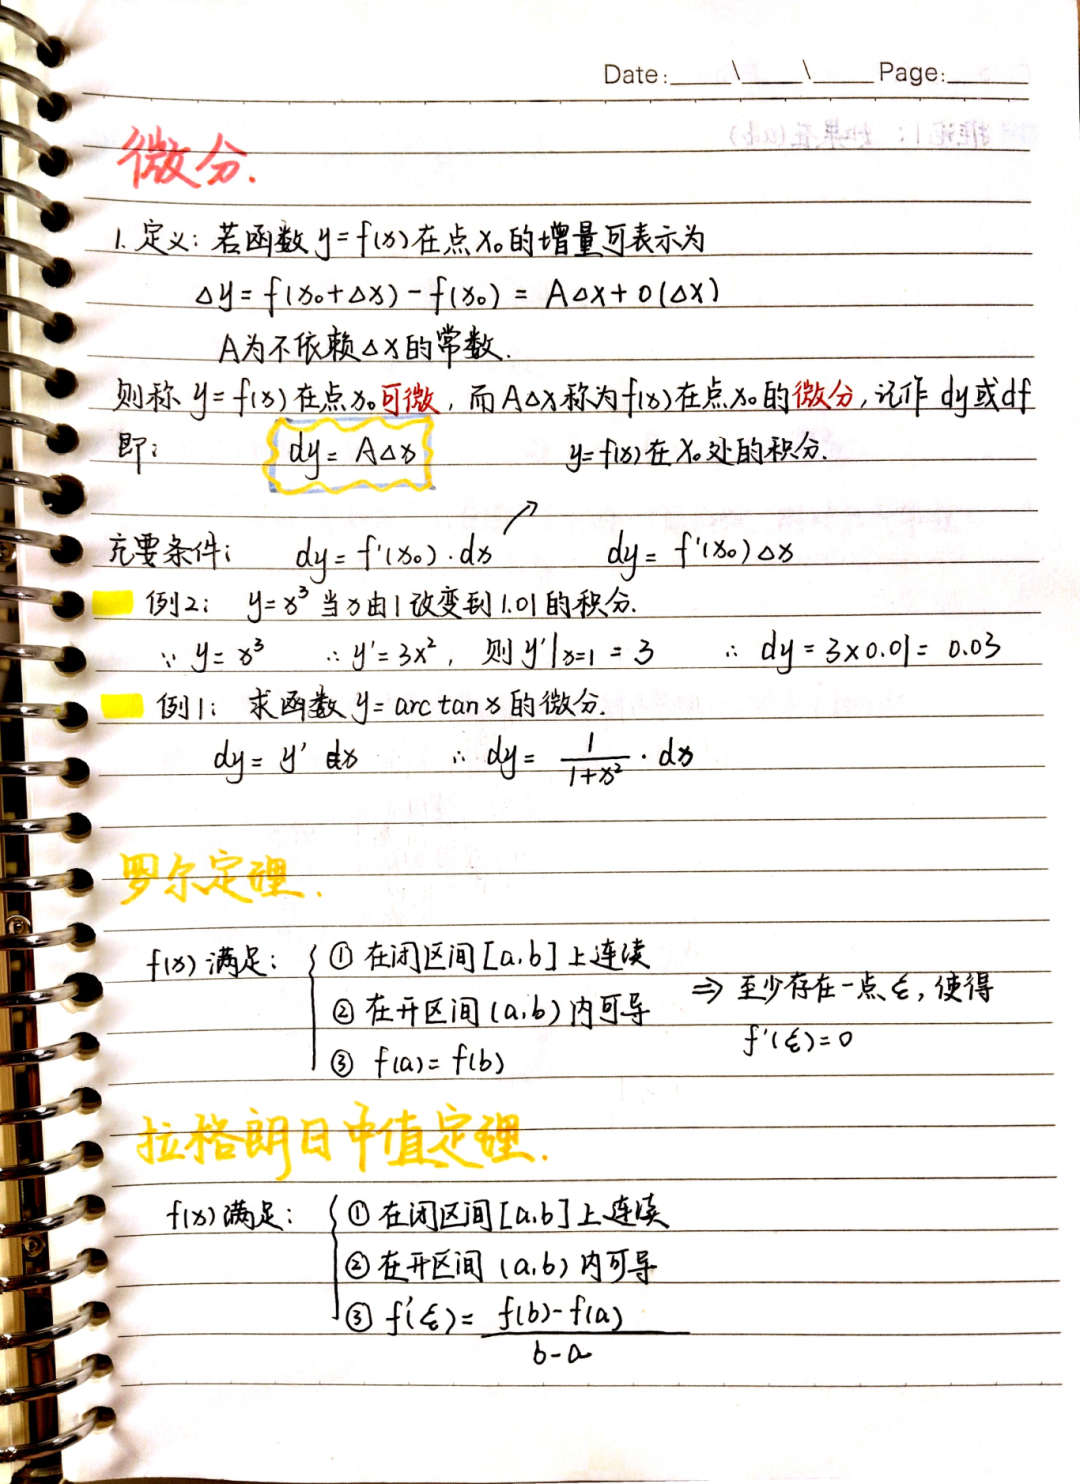 Date: \ \ Page:
微分.
1. 定义: 若函数 y=f(x) 在点 x₀ 的增量可表示为
Δy = f(x₀+Δx) - f(x₀) = AΔx + o(Δx)
A为不依赖Δx的常数.
则称 y=f(x) 在点x₀可微, 而AΔx称为f(x)在点x₀的微分, 记作 dy或df
即: dy = AΔx y=f(x)在x₀处的积分.
充要条件: dy = f'(x₀)·dx ↗ dy = f'(x₀)Δx
例2: y=x³ 当x由1改变到1.01的积分.
∵ y=x³ ∴ y'=3x², 则 y'|x=1 = 3 ∴ dy = 3×0.01 = 0.03
例1: 求函数 y=arctanx 的微分.
dy = y' dx ∴ dy = 1/(1+x²) · dx
罗尔定理.
f(x)满足: { ① 在闭区间[a,b]上连续
② 在开区间(a,b)内可导 ⇒ 至少存在一点ξ, 使得
③ f(a)=f(b) f'(ξ)=0
拉格朗日中值定理.
f(x)满足: { ① 在闭区间[a,b]上连续
② 在开区间(a,b)内可导
③ f'(ξ) = f(b)-f(a)
b-a